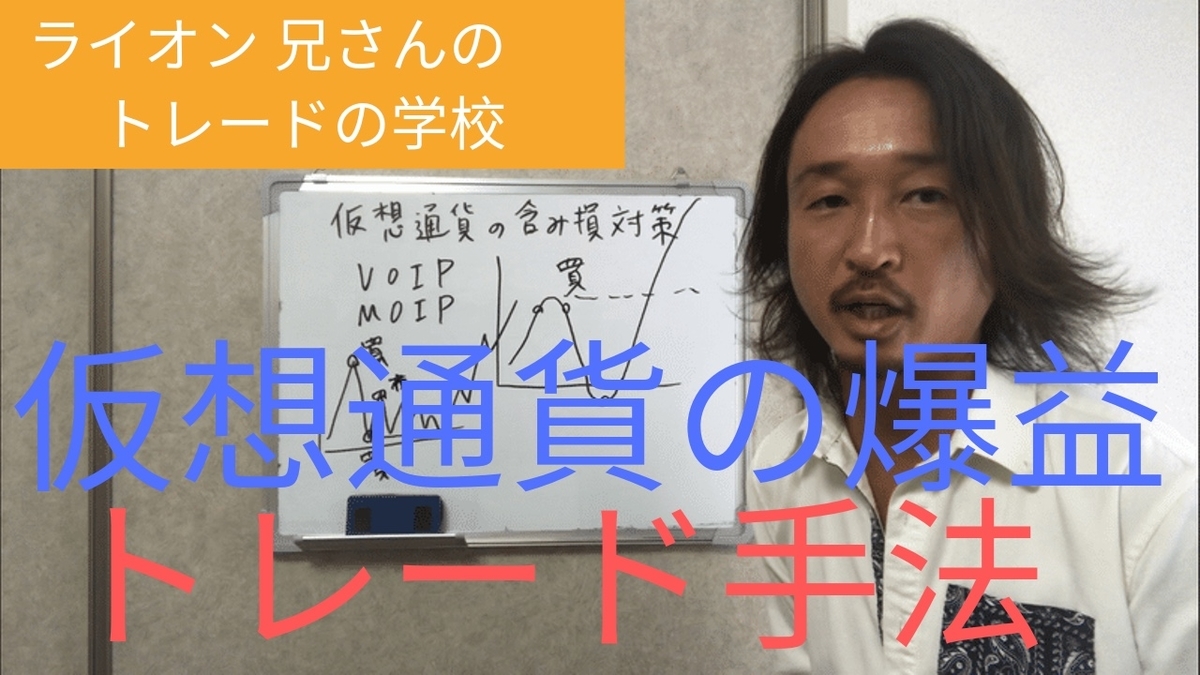 ライオン 兄さんの
トレードの学校
仮想通貨の含み損対策
VOIP
MOIP
買
買
仮想通貨の爆益
トレード手法